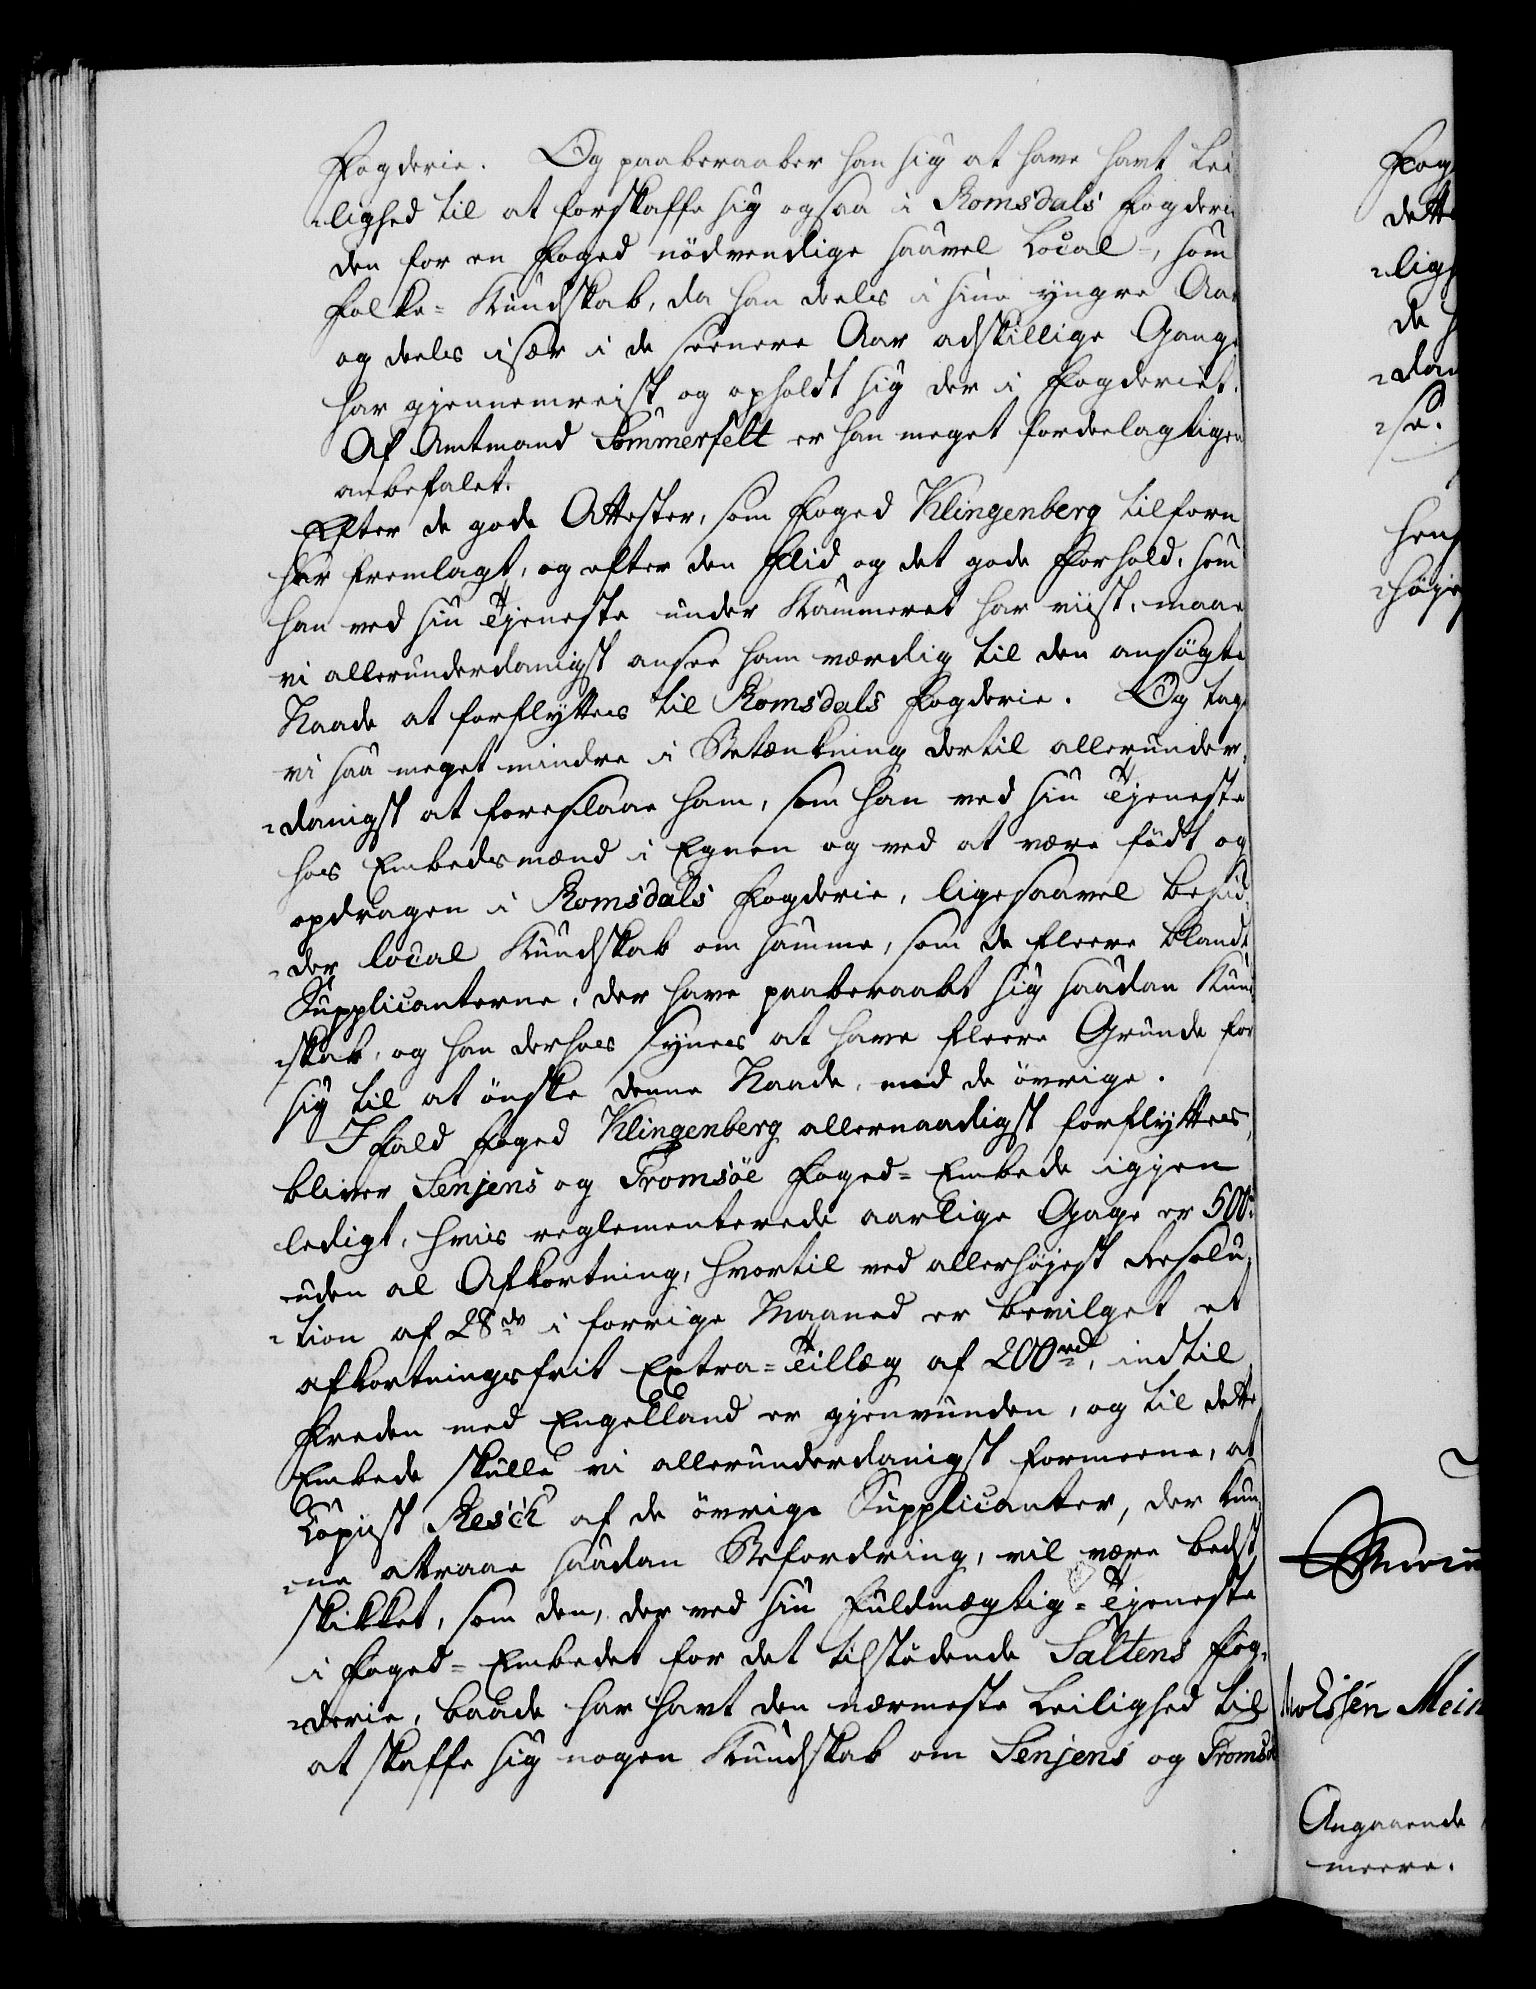 Fogderie. Og paaberaaber han sig at have havt Lei
-lighed til at forskaffe sig ogsaa i Romsdals Fogderi
den for en Foged nödvendige saavel Local-, som
Folke- Kundskab, da han deels i sine yngre Aar
og deels især i de seenere Aar adskillige Gange
har gjennemreist og opholdt sig der i Fogderiet.
Af Amtmand Sommerfelt er han meget fordeelagtigen
anbefalet.
Efter de gode Attester, som Foged Klingenberg tilforn
har fremlagt, og efter den Flid og det gode Forhold, som
han ved sin Tjeneste under Kammeret har viist, maae
vi allerunderdanigst ansee ham værdig til den ansögte
Naade at forflyttes til Romsdals Fogderie. Og tage
vi saa meget mindre i Betænkning dertil allerunder-
-danigst at foreslaae ham, som han ved sin Tjeneste
hos Embedsmænd i Egnen og ved at være födt og
opdragen i Romsdals Fogderie, ligesaavel besid-
-der local Kundskab om samme, som de fleere blandt
Supplicanterne, der have paaberaabt sig saadan Kund
-skab, og han derhos synes at have fleere Grunde for
sig til at önske denne Naade, end de övrige.
I Fald Foged Klingenberg allernaadigst forflyttes,
bliver Senjens og Tromsöe Foged-Embede igjen
ledigt, hvis reglementerede aarlige Gage er 500
uden al Afkortning, hvortil ved allerhöjest Resolu-
-tion af 28de i forrige Maaned er bevilget et
afkortningsfrit Extra-Tillæg af 200rd, indtil
Freden med Engelland er gjenvunden, og til dette
Embede skulle vi allerunderdanigst formeene, at
Copiist Resch af de övrige Supplicanter, der kun-
-ne attraae saadan Befordring, vil være bedst
skikket, som den, der ved sin Fuldmægtig-Tjeneste
i Foged-Embedet for det tilstödende Saltens Fog-
-derie, baade har havt den nærmeste Leilighed til
at skaffe sig nogen Kundskab om Senjens og Tromsöe
Fog
dette
-lig
de
-dan
-se.
-höje
Mein
Angaaende
meere.